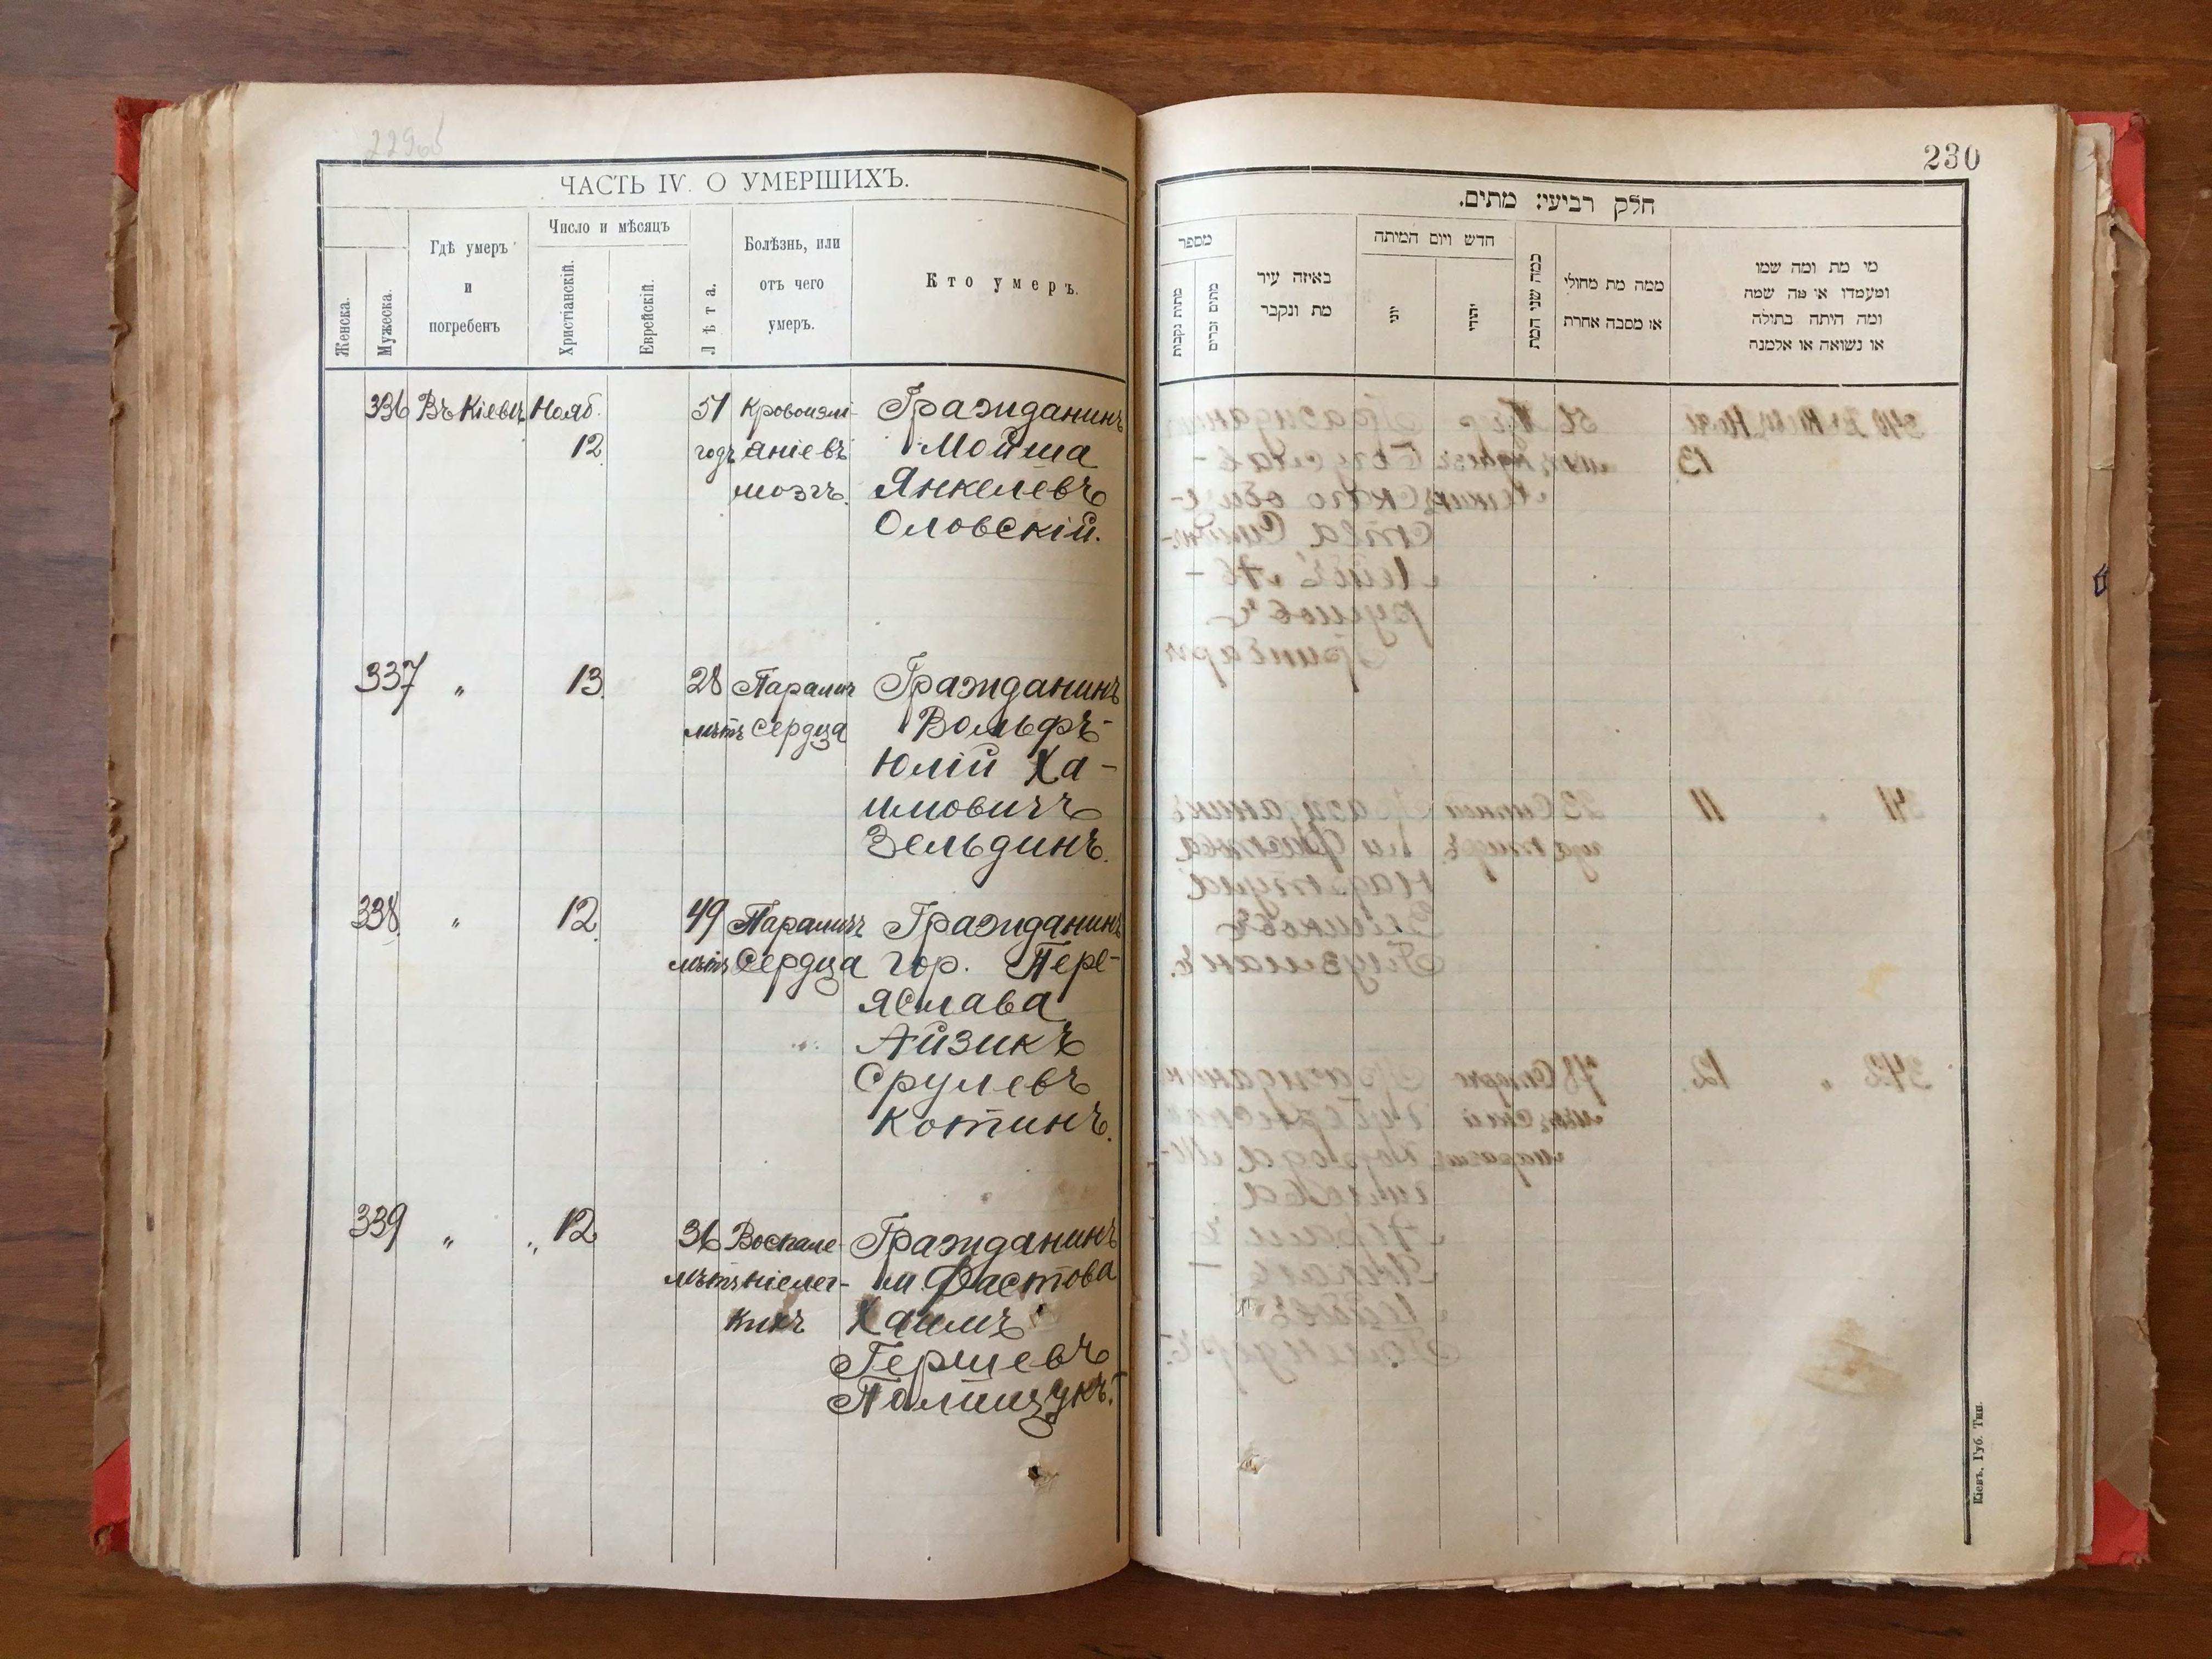 229об
ЧАСТЬ IV. О УМЕРШИХЪ.
Женска.
Мужеска.
Гдѣ умеръ
и
погребенъ
Число и мѣсяцъ
Христіанскій.
Еврейскій.
Лѣта.
Болѣзнь, или
отъ чего
умеръ.
Кто умеръ.
336 Въ Кіевѣ Нояб. 51 Кровоизлі- Гражданинъ
12 годъ аніе въ Мойша
мозгъ. Янкелевъ
Оловскій.
337 „ 13. 28 Параличъ Гражданинъ
лѣтъ сердца Вольфъ-
Юлій Ха-
имовичъ
Зельдинъ.
338 „ 12. 49 Параличъ Гражданинъ
лѣтъ Сердца гор. Пере-
яслава
Айзикъ
Срулевъ
Котинъ.
339 „ „ 12 36 Воспале- Гражданинъ
лѣтъ ніе лег- м. Фастова
кихъ Хаимъ
Гершевъ
Полищукъ.
230
חלק רביעי: מתים.
מספר
מתות נקבות
מתים זכרים
באיזה עיר
מת ונקבר
חדש ויום המיתה
יוני
יהודי
כמה שני המת
ממה מת מחולי
או מסבה אחרת
מי מת ומה שמו
ומעמדו או מה שמה
ומה היתה בתולה
או נשואה או אלמנה
Кіевъ. Губ. Тип.